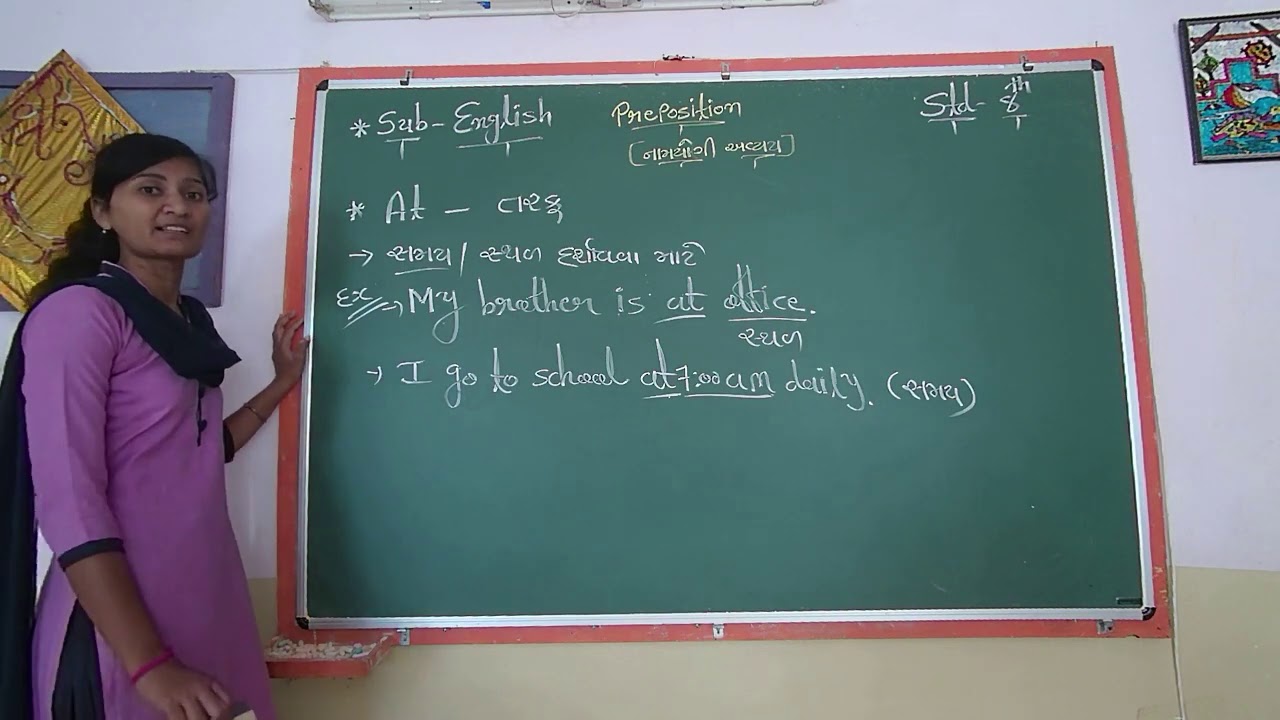 * Sub - English Preposition Std - 8th
[નામયોગી અવ્યય]
* At - તરફ
→ સમય / સ્થળ દર્શાવવા માટે
Ex → My brother is at office.
સ્થળ
→ I go to school at 7:00 am daily. (સમય)